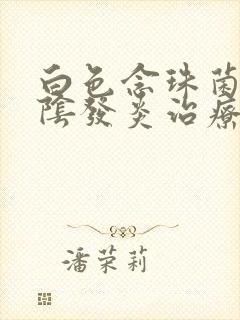 白色念珠菌
陰發炎治療
潘荣莉